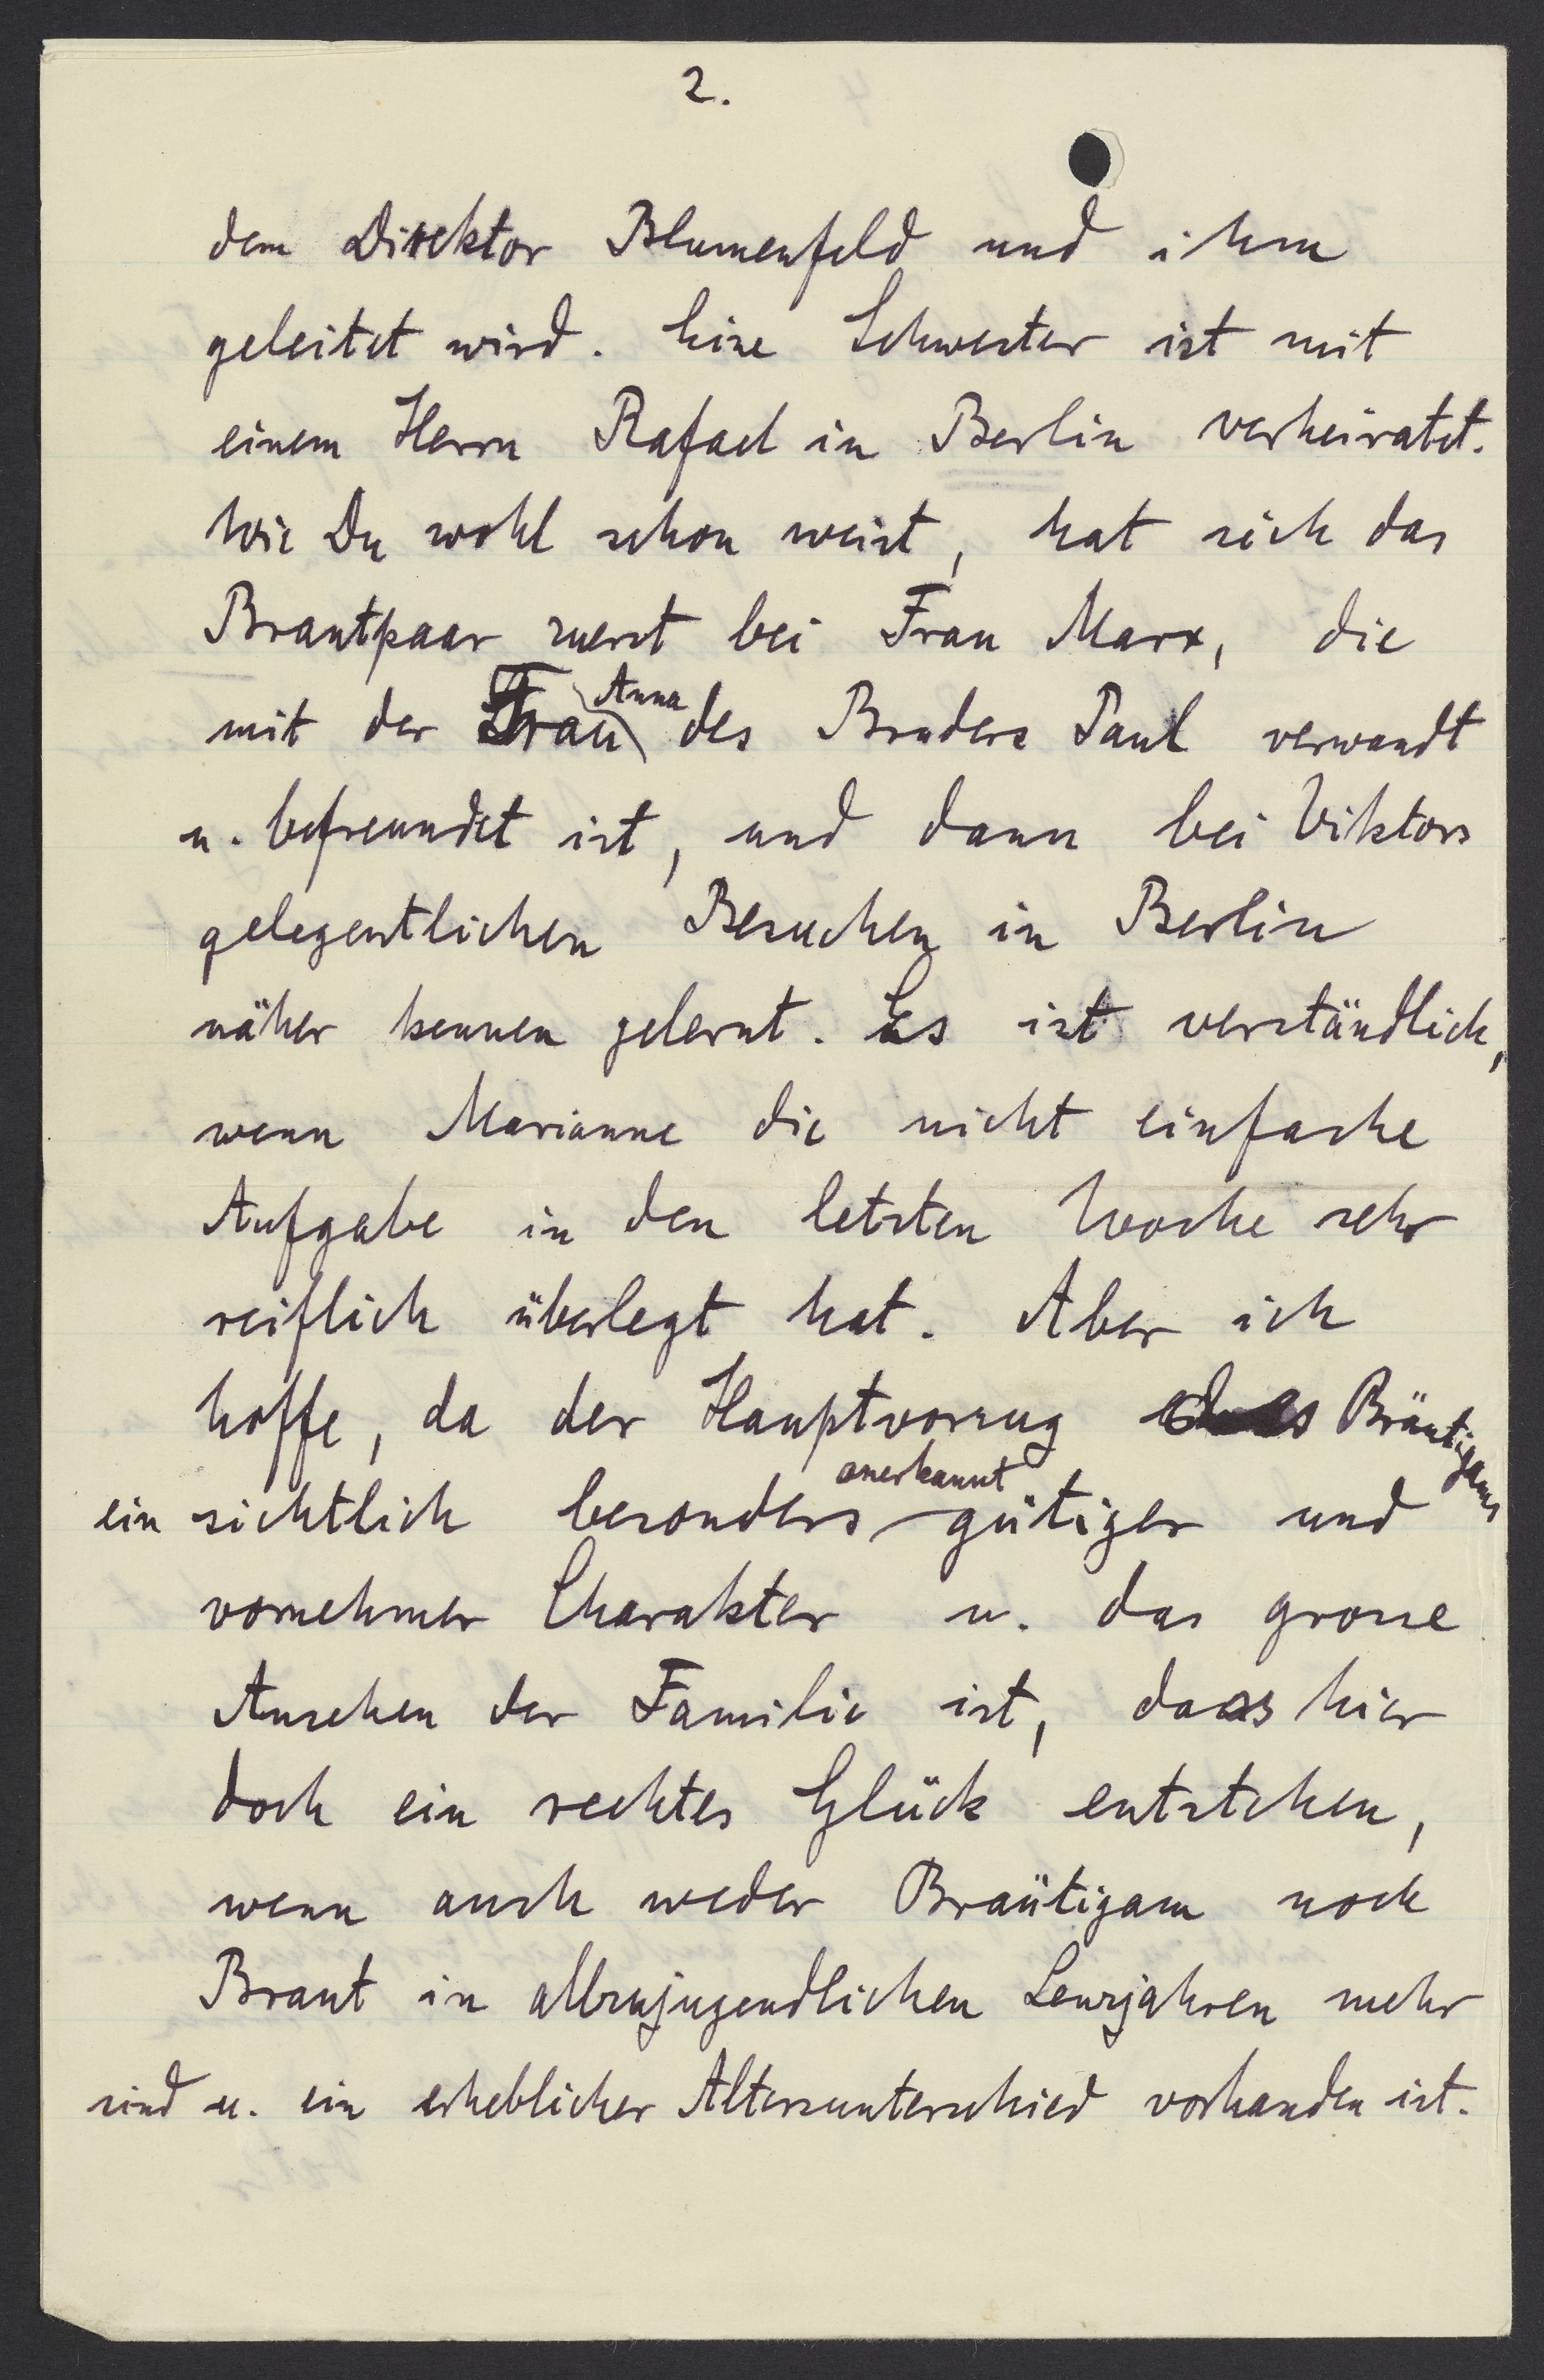 2.
dem Direktor Blumenfeld und ihm
geleitet wird. Eine Schwester ist mit
einem Herrn Rafael in Berlin verheiratet.
Wie Du wohl schon weist, hat sich das
Brautpaar zuerst bei Frau Marx, die
mit der Frau Anna des Bruders Paul verwandt
u. befreundet ist, und dann bei Viktors
gelegentlichen Besuchen in Berlin
näher kennen gelernt. Es ist verständlich,
wenn Marianne die nicht einfache
Aufgabe in den letzten Woche sehr
reiflich überlegt hat. Aber ich
hoffe, da der Hauptvorzug des Bräutigams
ein sichtlich besonders anerkannt gütiger und
vornehmer Charakter u. das grosse
Ansehen der Familie ist, dass hier
doch ein rechtes Glück entstehen,
wenn auch weder Bräutigam noch
Braut in allzujugendlichen Lenzjahren mehr
sind u. ein erheblicher Altersunterschied vorhanden ist.